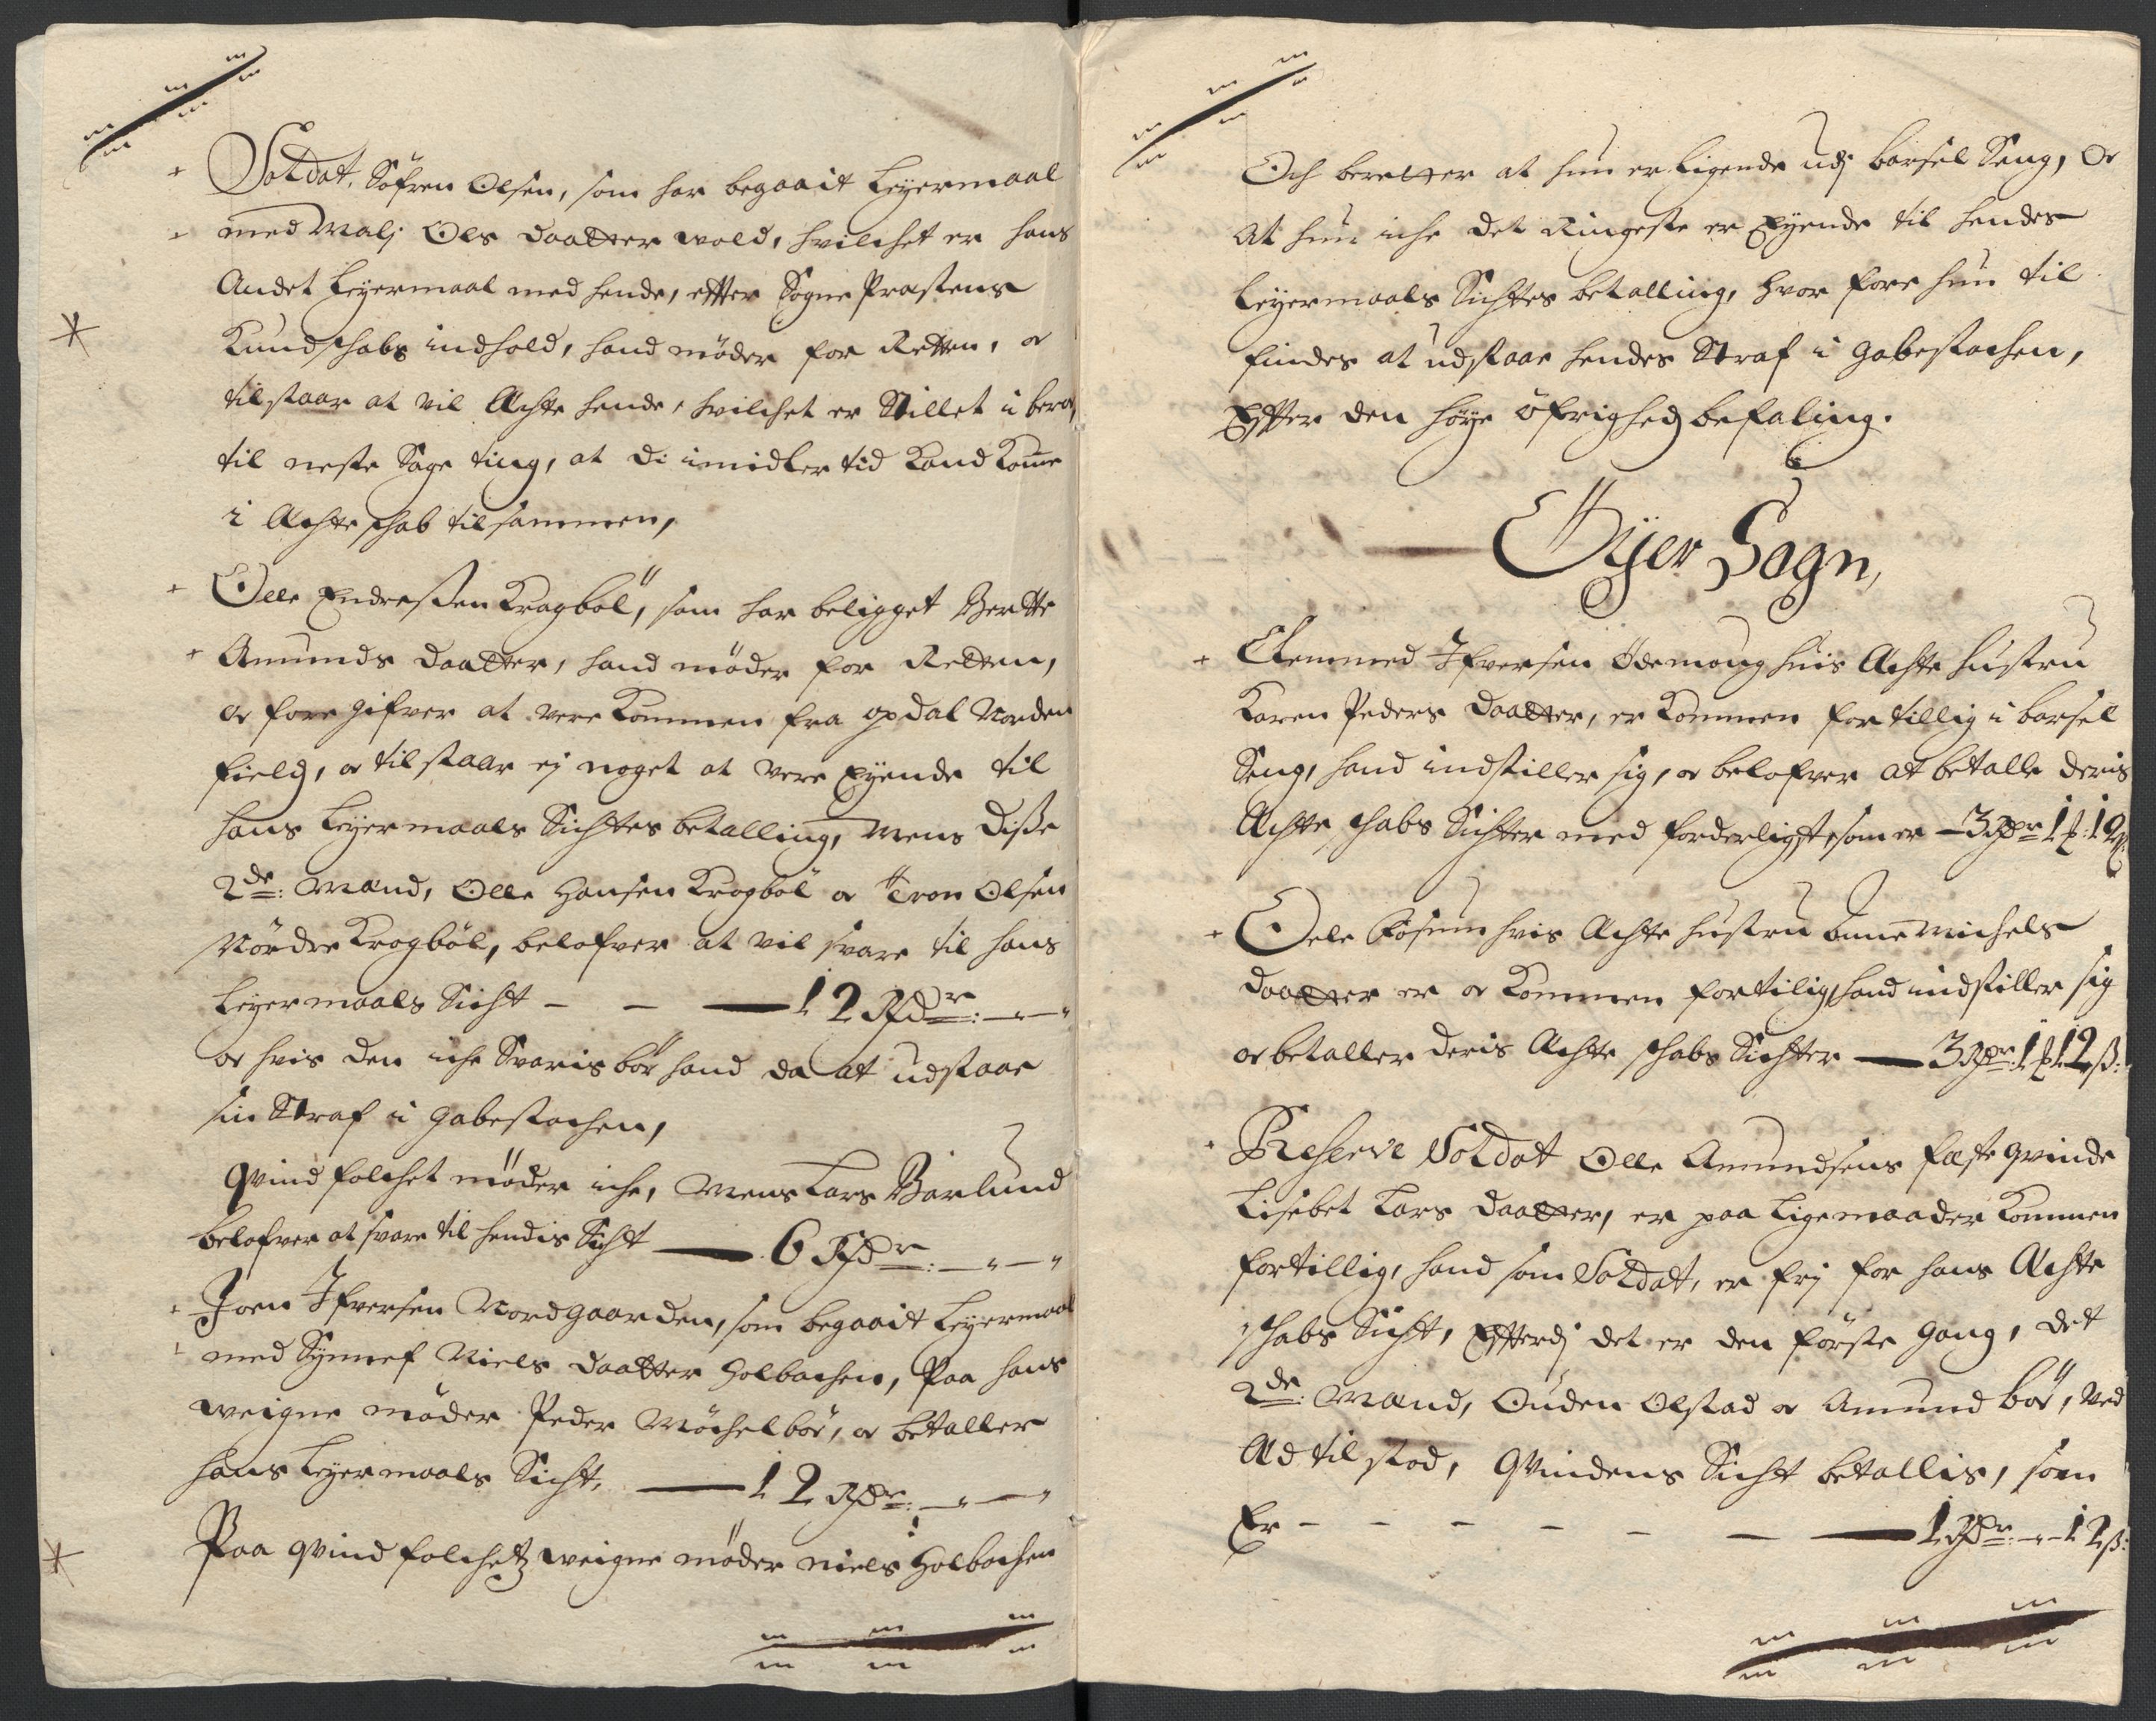 Soldat, Söfren Olsen, som har begaait Leyermaal
med Mali Ols daatter Wold, hvilchet er hans
Andet Leyermaal med hende, effter Sogne Præstens
Kundschabs indhold, hand möder for Retten, oc
tilstaar at vil Æchte hende, hvilchet er Stillet i bero,
til neste Sage ting, at di imidler tid Kand Kome
i Æchteschab tilsammen,
Olle Endresen Kragböl, som har beligget Beritte
Amunds daatter, hand möder for Retten,
oc foregifver at vere Kommen fra opdal Norden
field, oc tilstaar ej noget at vere Eyende til
hans Leyermaals Sichtes betalling, Mens disse
2de: Mænd, Olle Hansen Kragböl oc Tron Olsen
Nördre Kragböl, belofver at vil svare til hans
Leyermaals Sicht – – — 12 Rdr: – " – "
oc hvis den iche Svaris bör hand da at udstaae
sin Straf i gabestochen,
Qvindfolchet möder iche, Mens Lars Bärlund
belofver at svare til hendis Sicht — 6 Rdr: – " – "
Joen Ifversen Nordgaarden, som begaait Leyermaal
med Synnef Niels daatter Holbachen, Paa hans
weigne möder Peder Möchelbör, oc betaller
hans Leyermaals Sicht, — 12 Rdr: – " – "
Paa qvindfolchetz weigne möder Niels Holbachen
Och beretter at hun er ligende udj barsel Seng, Oc
At hun iche det Ringeste er Eyende til hendes
Leyermaals Sichtes betalling, hvor fore hun til
findes at udstaae hendes Straf i gabestochen,
Effter den höye öfrighed befaling.
Öyer Sogn,
Clemmed Ifversen Ödemoug hvis Æchte hustru
Karen Peders daatter, er Kommen for tillig i barsel
Seng, hand indstiller sig, oc belofver at betalle deris
Æchte schabs Sichter med forderligste som er — 3 Rdr 1 ƒ: 12 ß
Oele Fösum hvis Æchte hustru Anne Michels
daatter er oc Kommen fortilig, hand indstiller sig
oc betaller deris Æchte schabs Sichter — 3 Rdr: 1 ƒ 12 ß:
Reserve Soldat Olle Amundsens fæste qvinde
Lisebet Lars daatter, er paa lige maader Kommen
fortillig, hand som Soldat, er frj for hans Æchte
schabs Sicht, Effterdj det er den förste gang, det
2de: Mænd, Ouden Olstad oc Amund bör, Ved
Æd tilstod, Qvindens Sicht betallis, som
Er – – – – – — 1 Rdr: – " – 12 ß: